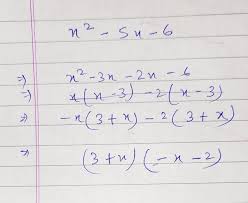 x² - 5x - 6
=) x² - 3x - 2x - 6
=) x(x - 3) - 2(x - 3)
=) -x(3 + x) - 2(3 + x)
=) (3 + x) (-x - 2)